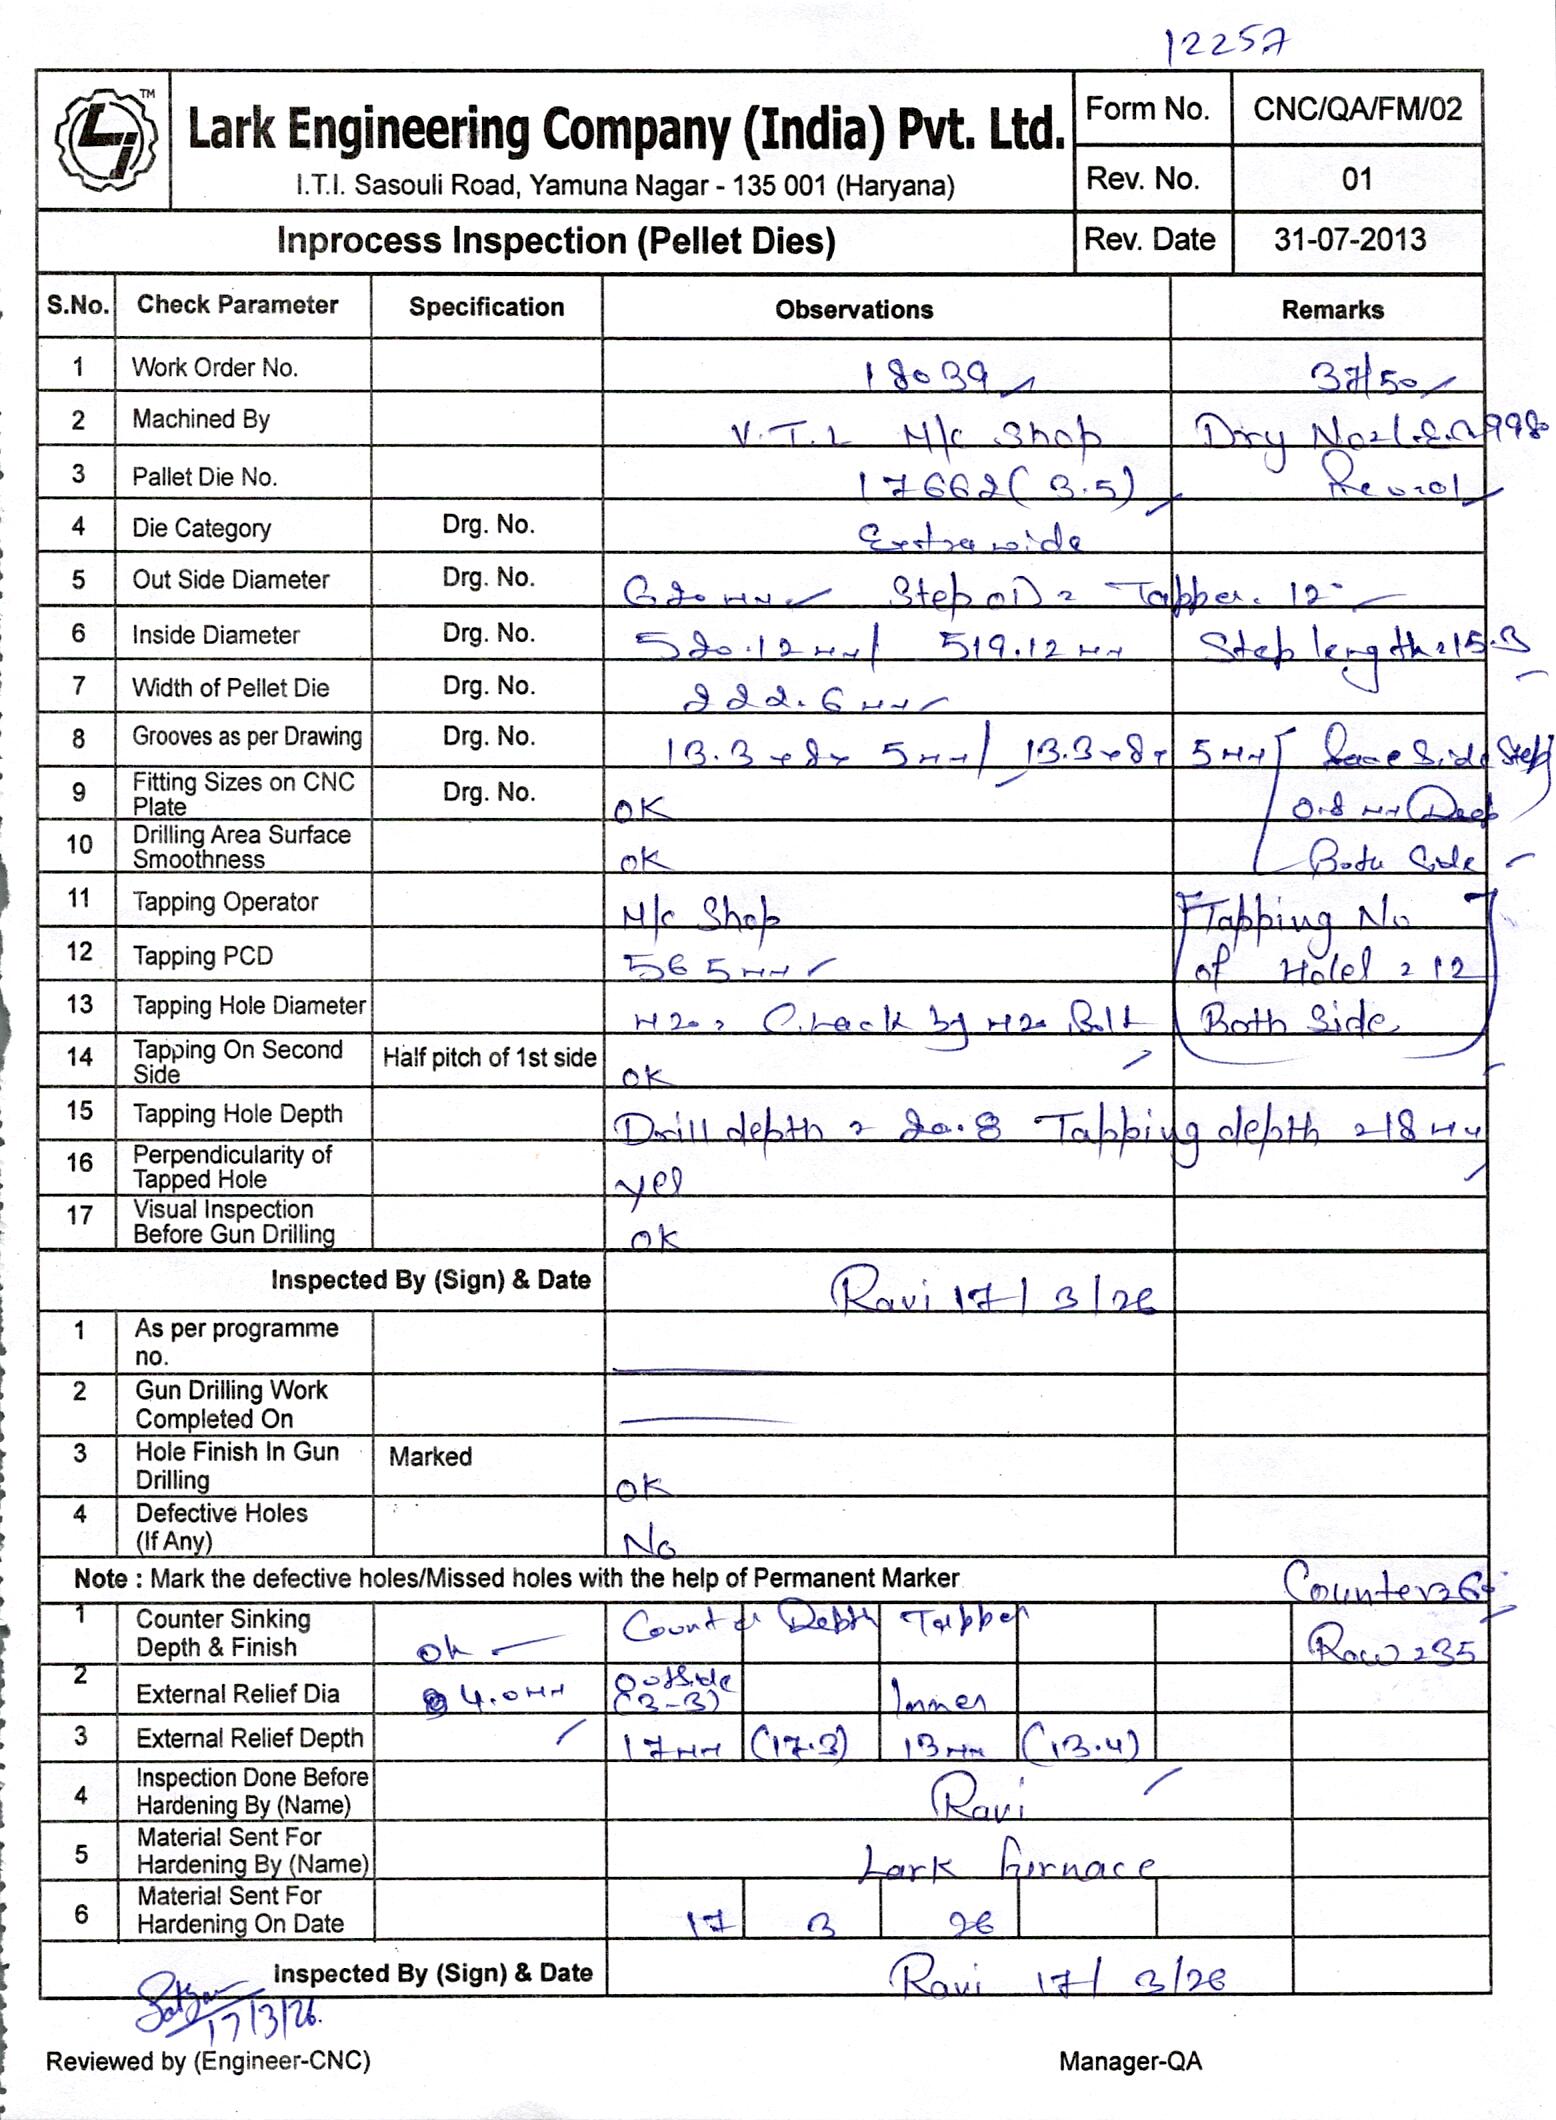 12257
TM
Lark Engineering Company (India) Pvt. Ltd.
I.T.I. Sasouli Road, Yamuna Nagar - 135 001 (Haryana)
Form No. CNC/QA/FM/02
Rev. No. 01
Inprocess Inspection (Pellet Dies) Rev. Date 31-07-2013
S.No. Check Parameter Specification Observations Remarks
1 Work Order No. 18039 37/50
2 Machined By V.T.L M/c Shop
3 Pallet Die No. 17662(3.5)
4 Die Category Drg. No. Extra wide
5 Out Side Diameter Drg. No. 620 mm Step OD = Tapper. 12°
6 Inside Diameter Drg. No. 520.12 mm/ 519.12 mm Step length = 15.3
7 Width of Pellet Die Drg. No. 222.6 mm
8 Grooves as per Drawing Drg. No. 13.3 x 8 x 5mm/ 13.3 x 8 x 5mm Side Step
9 Fitting Sizes on CNC Plate Drg. No. OK 0.8 mm Deep
10 Drilling Area Surface Smoothness OK Both Side
11 Tapping Operator M/c Shop Tapping No
12 Tapping PCD 565mm of Holel = 12
13 Tapping Hole Diameter M20 = Check by M20 Bolt Both Side
14 Tapping On Second Side Half pitch of 1st side OK
15 Tapping Hole Depth Drill depth = 20.8 Tapping depth = 18 mm
16 Perpendicularity of Tapped Hole yes
17 Visual Inspection Before Gun Drilling OK
Inspected By (Sign) & Date Ravi 17/3/26
1 As per programme no.
2 Gun Drilling Work Completed On
3 Hole Finish In Gun Drilling Marked OK
4 Defective Holes (If Any) No
Note : Mark the defective holes/Missed holes with the help of Permanent Marker
1 Counter Sinking Depth & Finish ok Counter Depth Tapper Row = 35
2 External Relief Dia 4.0mm Outside (3-3) Inner
3 External Relief Depth 17mm (17.3) 13mm (13.4)
4 Inspection Done Before Hardening By (Name) Ravi
5 Material Sent For Hardening By (Name) Lark furnace
6 Material Sent For Hardening On Date 17 3 26
Inspected By (Sign) & Date Ravi 17/3/26
17/3/26.
Reviewed by (Engineer-CNC) Manager-QA